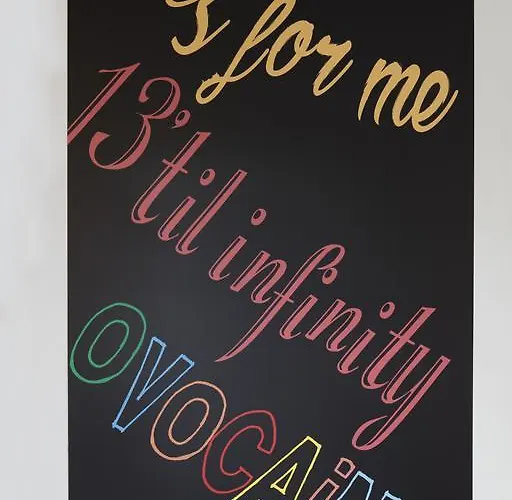 for me
13 'til infinity
OVOCAiN